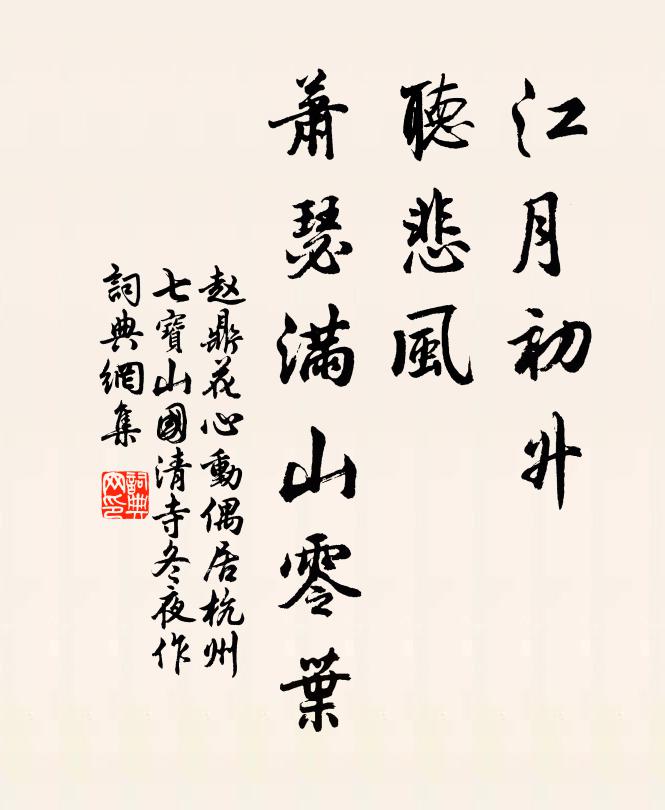 江月初升
聽悲風
蕭瑟滿山零葉
赵鼎花心動偶居杭州
七寶山國清寺冬夜作
詞典網集
詞典
网印